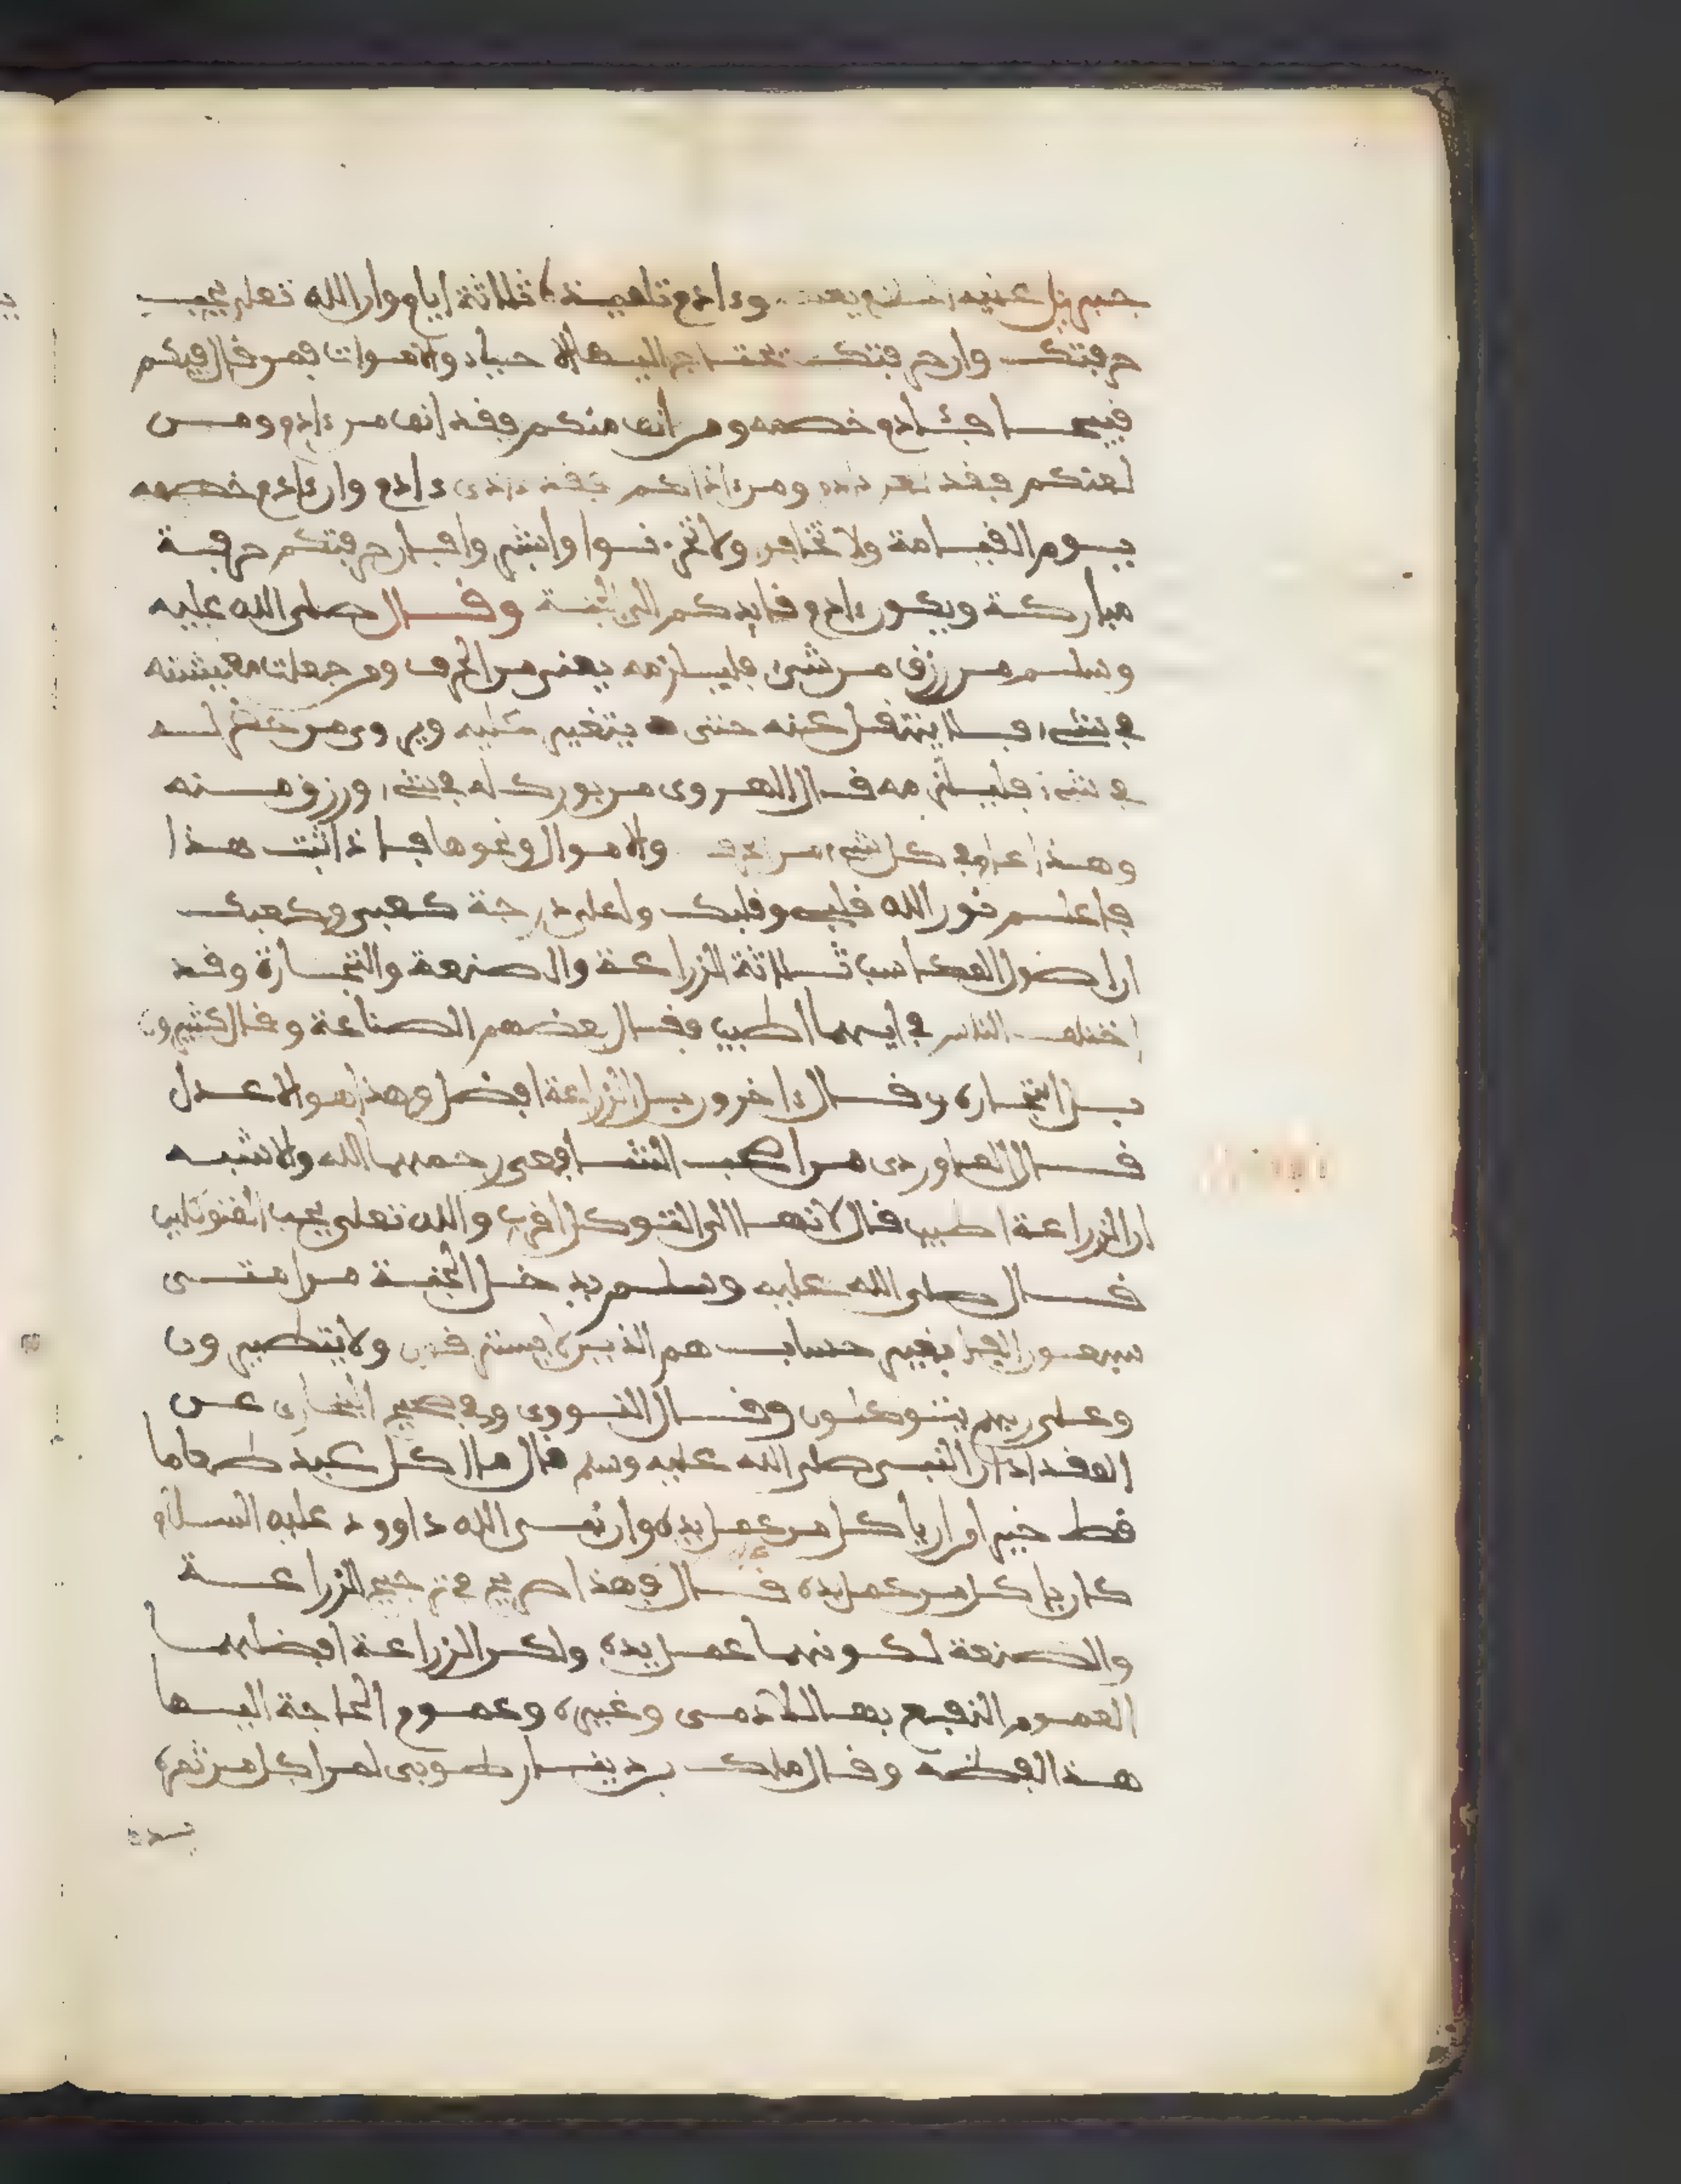 جبريل عليه السلم يعد وءادم تلميذه ثلاثة ايام وان الله تعلى يحب
حرفتك وان حرفتك تحتاج اليها الاحياء والاموات فمن قال فيكم
قبيحا فئادم خصمه ومن انف منكم فقد انف من ءادم ومن
لعنكم فقد لعن ءادم ومن ءاذاكم فقد ءاذى ءادم وان ءادم خصمه
يوم القيامة ولا تخافن ولا تحزنوا وابشروا فان حرفتكم حرفة
مباركة ويكون ءادم قايدكم الى الجنة وقال صلى الله عليه
وسلم من رزق من شيء فليلزمه يعنى من الحرف ومن جعلت معيشته
في شيء فلا ينتقل عنه حتى يتغير عليه ويروى من حضر له
في شيء فليلزمه قال الهروى من بورك له في شيء ورزق منه
وهذا عام في كل شيء من الحرف والاموال ونحوها فاذا ثبت هذا
فاعلم نور الله قلبى وقلبك واعلى درجة كعبى وكعبك
ان اصول المكاسب ثلاثة الزراعة والصنعة والتجارة وقد
اختلف الناس في ايهما اطيب فقال بعضهم الصناعة وقال كثيرون
بل التجارة وقال ءاخرون بل الزراعة افضل وهذا هو الاعدل
قال الماوردى من اصحب الشافعى رحمهما الله والاشبه
ان الزراعة اطيب قال لانها الى التوكل اقرب والله تعلى يحب المتوكلين
قال صلى الله عليه وسلم يدخل الجنة من امتى
سبعون الفا بغير حساب هم الذين لا يسترقون ولا يتطيرون
وعلى ربهم يتوكلون وقال النووى وفي صحيح البخارى عن
المقداد ان النبى صلى الله عليه وسلم قال ما اكل عبد طعاما
قط خيرا من ان ياكل من عمل يده وان نبى الله داوود عليه السلام
كان ياكل من عمل يده قال فهذا صريح في ترجيح الزراعة
والصنعة لكونهما عمل يده ولكن الزراعة افضلهما
لعموم النفع بها للادمى وغيره وعموم الحاجة اليها
هذا لفظه وقال ملك بن دينار طوبى لمن اكل من ثمرة
يده